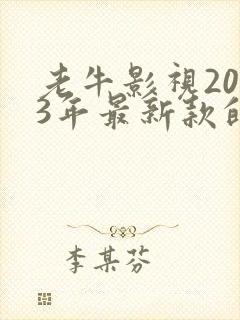 老牛影視20
3年最新款的
李某芬